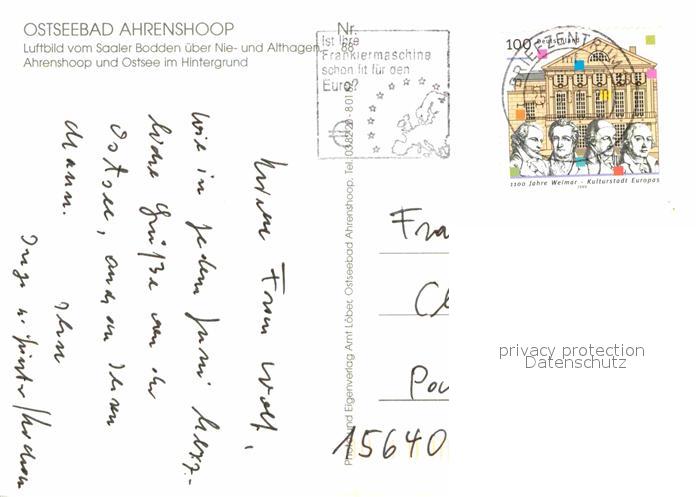 OSTSEEBAD AHRENSHOOP
Luftbild vom Saaler Bodden über Nie- und Althagen,
Ahrenshoop und Ostsee im Hintergrund
Nr.
86
Ist Ihre
Frankiermaschine
schon fit für den
Euro?
100 Deutschland
BRIEFZENTRUM
1100 Jahre Weimar - Kulturstadt Europas
1999
Photo und Eigenverlag Arnt Löber, Ostseebad Ahrenshoop, Tel. 038220-8016
Frau Wolf,
wie in jedem Juni herz-
liche Grüße von der
Ostsee, auch an Ihren
Mann.
Ihre
Fra
Cl
Pou
15640
privacy protection
Datenschutz